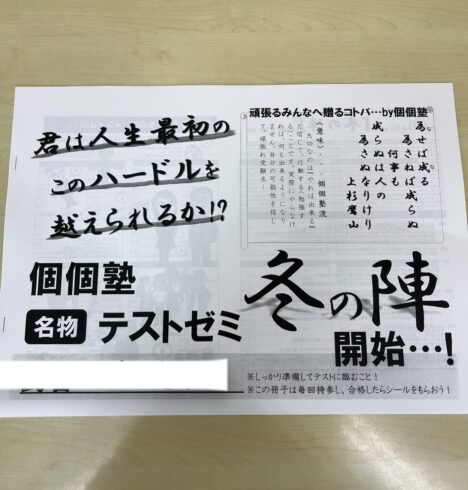 君は人生最初の
このハードルを
越えられるか!?
個個塾
名物 テストゼミ
頑張るみんなへ贈るコトバ…by個個塾
為せば成る
為さねば成らぬ
何事も
成らぬは人の
為さぬなりけり
上杉鷹山
〈意味〉… 個個塾流
大切なのは『やれば出来る』
と信じて、行動する(勉強す
る)ことです。実際にやらなけ
れば、何も出来るようになり
ません。自分の可能性を信じ
て、頑張れ受験生!
冬の陣
開始…!
※しっかり準備してテストに臨むこと!
※この冊子は毎回持参し、合格したらシールをもらおう!